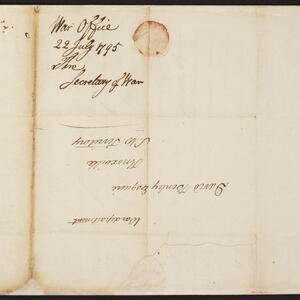 War Office
22 July 1795
Secretary of War
War department
David Henley Esquire
Knoxville
S W Territory